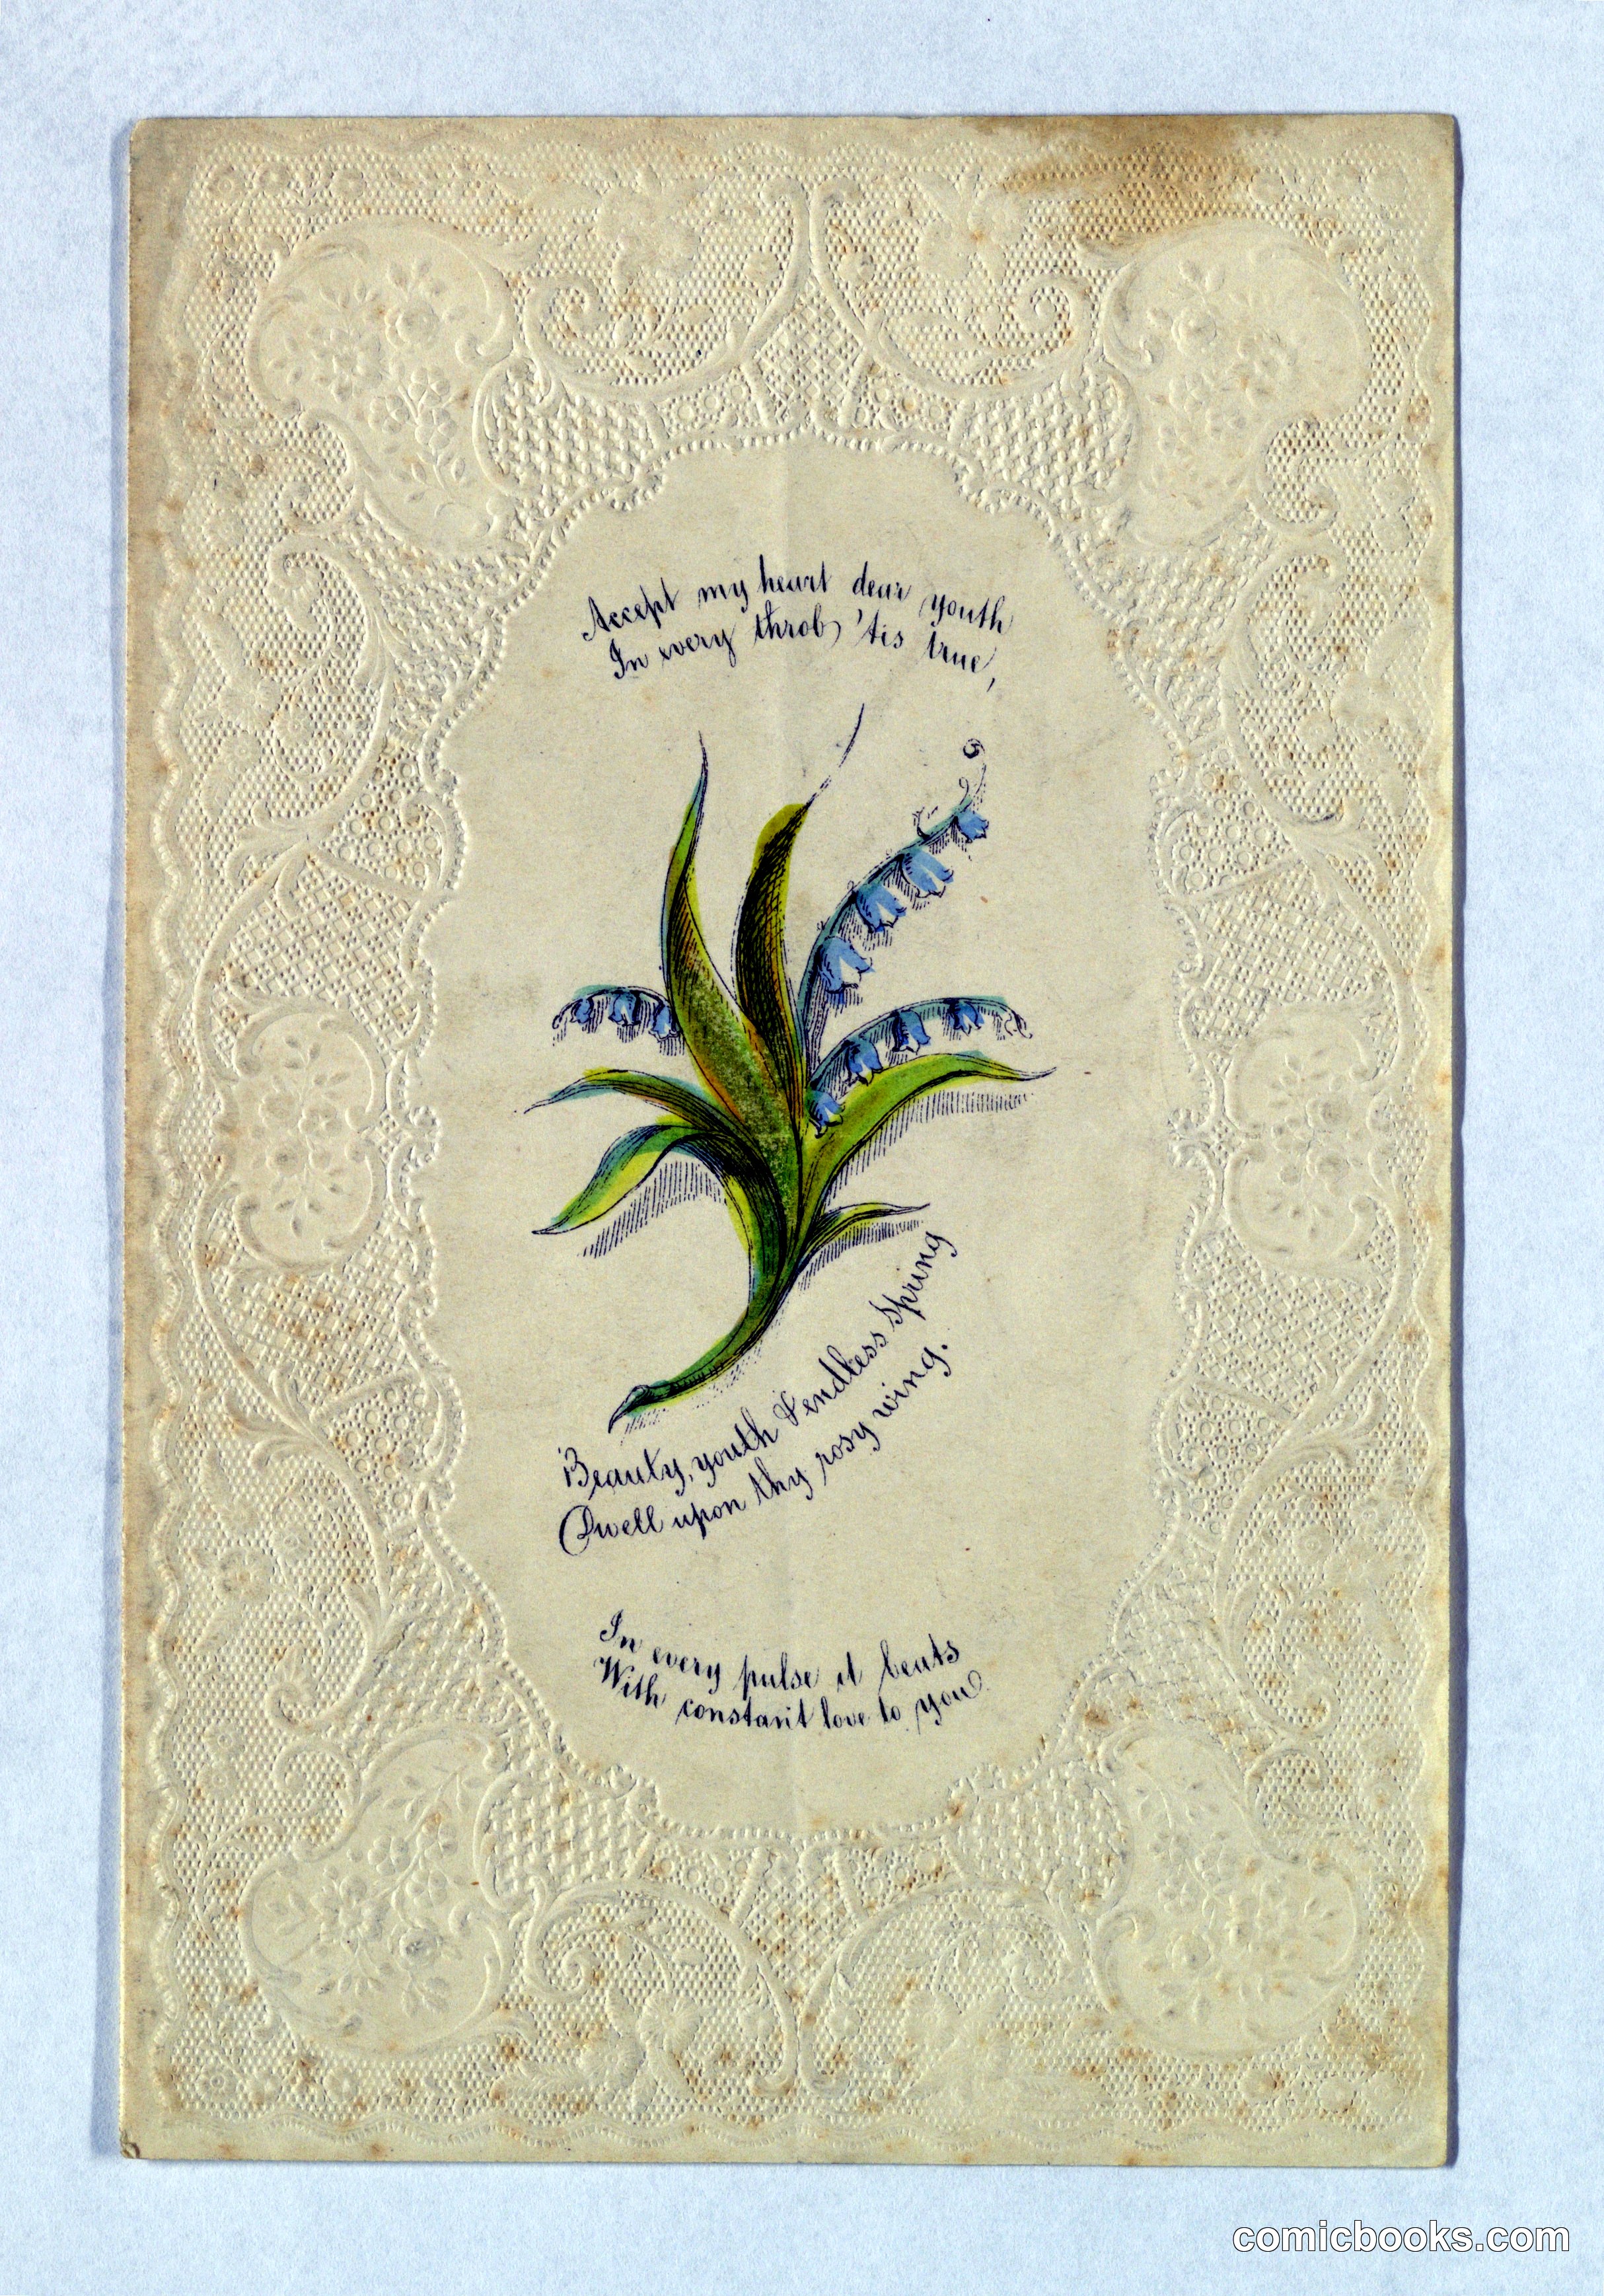 Accept my heart dear youth
In every throb 'tis true,
Beauty, youth & endless spring
Dwell upon thy rosy wing.
In every pulse it beats
With constant love to you
comicbooks.com